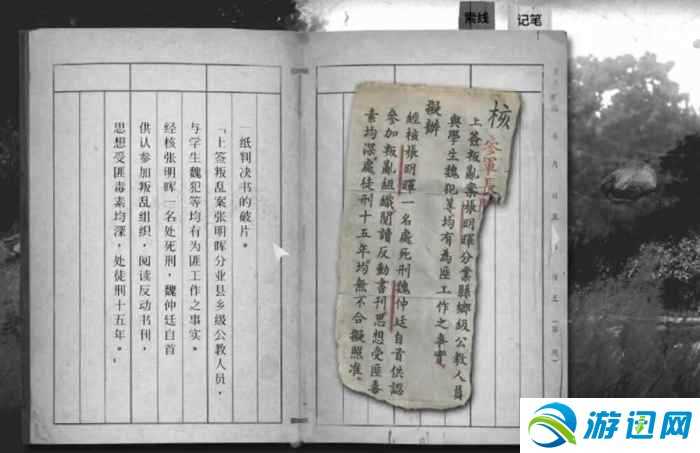 索线
记笔
一纸判决书的破片。
「上签叛乱案张明晖分业县乡级公教人员，
与学生魏犯等均有为匪工作之事实。
经核张明晖一名处死刑，魏仲廷自首
供认参加叛乱组织，阅读反动书刊，
思想受匪毒素均深，处徒刑十五年。
核
參軍長
上簽叛亂案張明暉分業縣鄉級公教人員
與學生魏犯等均有為匪工作之事實
擬辦
經核張明暉一名處死刑魏仲廷自首供認
參加叛亂組織閱讀反動書刊思想受匪毒
素均深處徒刑十五年均無不合擬照准
游迅网